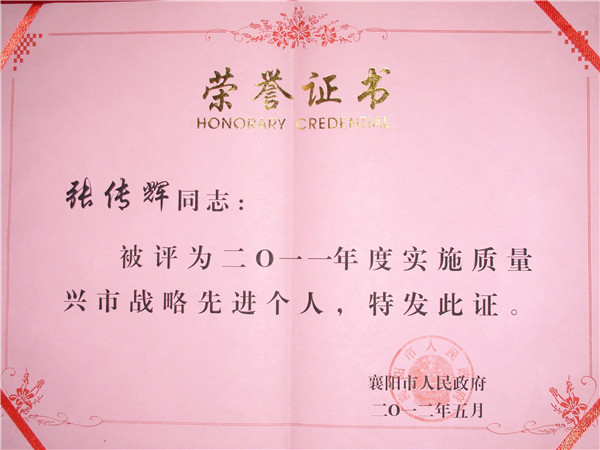 荣誉证书
HONORARY CREDENTIAL
张传辉同志：
被评为二〇一一年度实施质量
兴市战略先进个人，特发此证。
襄阳市人民政府
二〇一二年五月